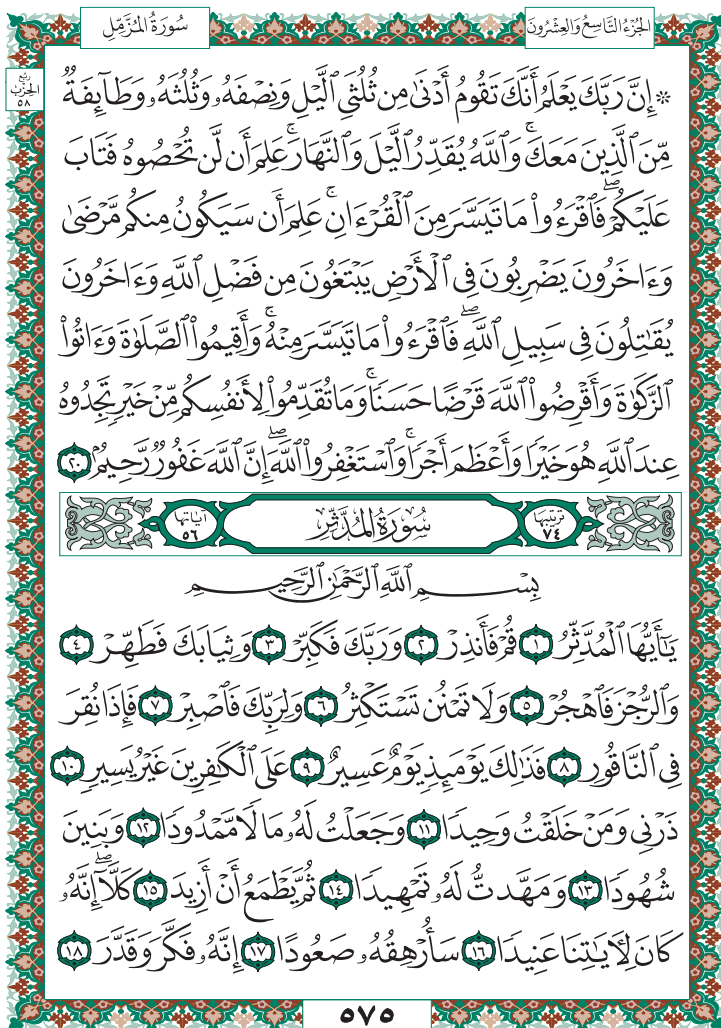 الجُزْءُ التَّاسِعُ وَالعِشْرُونَ
سُورَةُ المُزَّمِّلِ
رُبْع
الحِزْب
٥٨
۞ إِنَّ رَبَّكَ يَعۡلَمُ أَنَّكَ تَقُومُ أَدۡنَىٰ مِن ثُلُثَيِ ٱلَّيۡلِ وَنِصۡفَهُۥ وَثُلُثَهُۥ وَطَآئِفَةٞ
مِّنَ ٱلَّذِينَ مَعَكَۚ وَٱللَّهُ يُقَدِّرُ ٱلَّيۡلَ وَٱلنَّهَارَۚ عَلِمَ أَن لَّن تُحۡصُوهُ فَتَابَ
عَلَيۡكُمۡۖ فَٱقۡرَءُواْ مَا تَيَسَّرَ مِنَ ٱلۡقُرۡءَانِۚ عَلِمَ أَن سَيَكُونُ مِنكُم مَّرۡضَىٰ
وَءَاخَرُونَ يَضۡرِبُونَ فِي ٱلۡأَرۡضِ يَبۡتَغُونَ مِن فَضۡلِ ٱللَّهِ وَءَاخَرُونَ
يُقَٰتِلُونَ فِي سَبِيلِ ٱللَّهِۖ فَٱقۡرَءُواْ مَا تَيَسَّرَ مِنۡهُۚ وَأَقِيمُواْ ٱلصَّلَوٰةَ وَءَاتُواْ
ٱلزَّكَوٰةَ وَأَقۡرِضُواْ ٱللَّهَ قَرۡضًا حَسَنٗاۚ وَمَا تُقَدِّمُواْ لِأَنفُسِكُم مِّنۡ خَيۡرٖ تَجِدُوهُ
عِندَ ٱللَّهِ هُوَ خَيۡرٗا وَأَعۡظَمَ أَجۡرٗاۚ وَٱسۡتَغۡفِرُواْ ٱللَّهَۖ إِنَّ ٱللَّهَ غَفُورٞ رَّحِيمُۢ ٢٠
ترتيبها ٧٤ سُورَةُ المُدَّثِّرِ آياتها ٥٦
بِسۡمِ ٱللَّهِ ٱلرَّحۡمَٰنِ ٱلرَّحِيمِ
يَٰٓأَيُّهَا ٱلۡمُدَّثِّرُ ١ قُمۡ فَأَنذِرۡ ٢ وَرَبَّكَ فَكَبِّرۡ ٣ وَثِيَابَكَ فَطَهِّرۡ ٤
وَٱلرُّجۡزَ فَٱهۡجُرۡ ٥ وَلَا تَمۡنُن تَسۡتَكۡثِرُ ٦ وَلِرَبِّكَ فَٱصۡبِرۡ ٧ فَإِذَا نُقِرَ
فِي ٱلنَّاقُورِ ٨ فَذَٰلِكَ يَوۡمَئِذٖ يَوۡمٌ عَسِيرٌ ٩ عَلَى ٱلۡكَٰفِرِينَ غَيۡرُ يَسِيرٖ ١٠
ذَرۡنِي وَمَنۡ خَلَقۡتُ وَحِيدٗا ١١ وَجَعَلۡتُ لَهُۥ مَالٗا مَّمۡدُودٗا ١٢ وَبَنِينَ
شُهُودٗا ١٣ وَمَهَّدتُّ لَهُۥ تَمۡهِيدٗا ١٤ ثُمَّ يَطۡمَعُ أَنۡ أَزِيدَ ١٥ كَلَّآۖ إِنَّهُۥ
كَانَ لِأٓيَٰتِنَا عَنِيدٗا ١٦ سَأُرۡهِقُهُۥ صَعُودًا ١٧ إِنَّهُۥ فَكَّرَ وَقَدَّرَ ١٨
٥٧٥